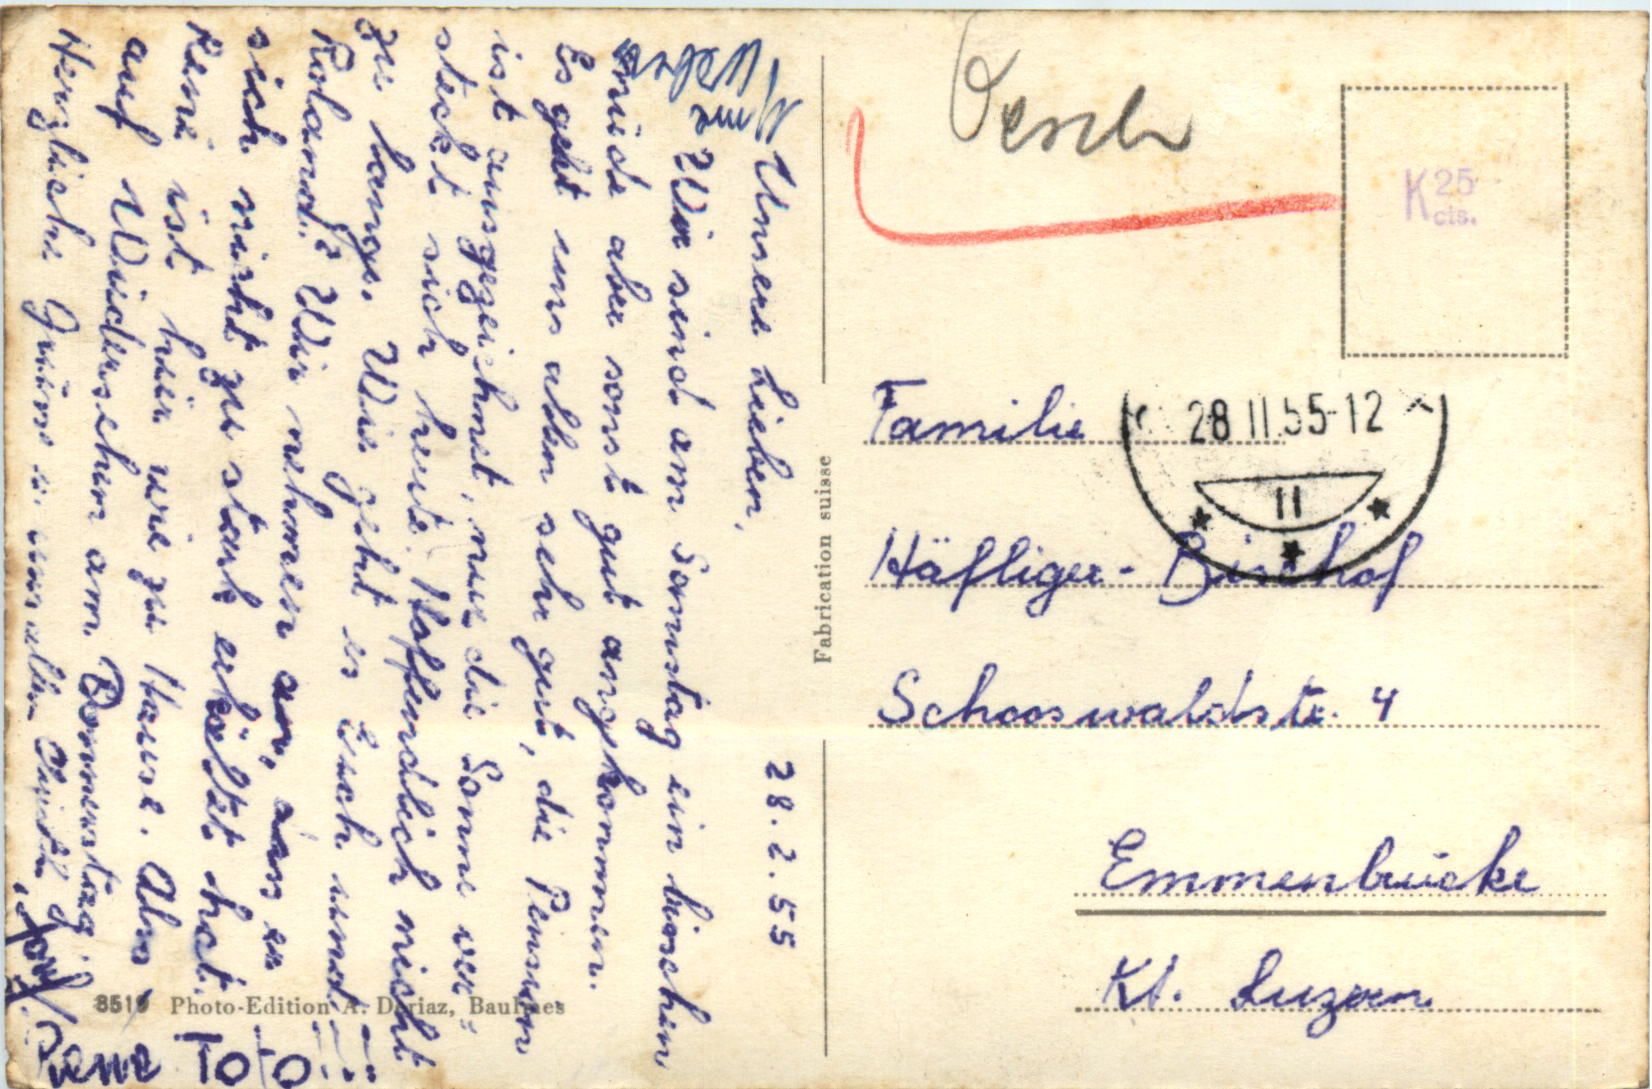 28.2.55
Unsere Lieben,
Wir sind am Samstag ein bisschen
müde aber sonst gut angekommen.
Es geht uns allen sehr gut, die Pension
ist ausgezeichnet, nur die Sonne ver-
steckt sich heute. Hoffendlich nicht
zu lange. Wie geht es Euch und
Roland? Wir nehmen an, dan er
sich nicht zu stark erkältet hat.
René ist hier wie zu Hause. Also
auf Wiedersehen am Donnerstag!
Herzliche Grüsse v. uns allen
René Toto
8519 Photo-Edition A. Dériaz, Baulmes
Fabrication suisse
K 25
cts.
28 II.55-12
11
Familie
Häfliger-Bischof
Schooswaldstr. 4
Emmenbrücke
Kt. Luzern